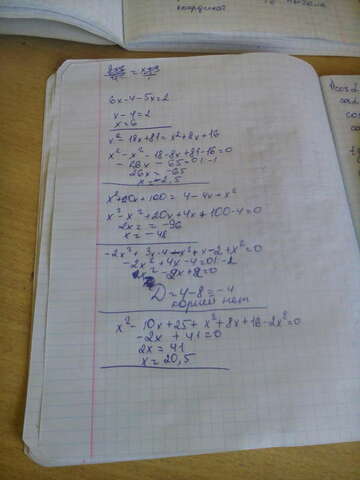 коорднат
6x-4-5x=2
x-4=2
x=6
x²-18x+81=x²+8x+16
x²-x²-18-8x+81-16=0
-26x - 65=0|·-1
26x = -65
x=-2,5
x²+20x+100= 4-4x+x²
x²-x²+20x+4x+100-4=0
2x = -96
x = -48
-2x²+3x-4-x²+x-2+x²=0
-2x²+4x-4=0|:-2
D=4-8=-4
корней нет
x²-10x+25+x²+8x+16-2x²=0
-2x+41=0
2x=41
x=20,5
cos2